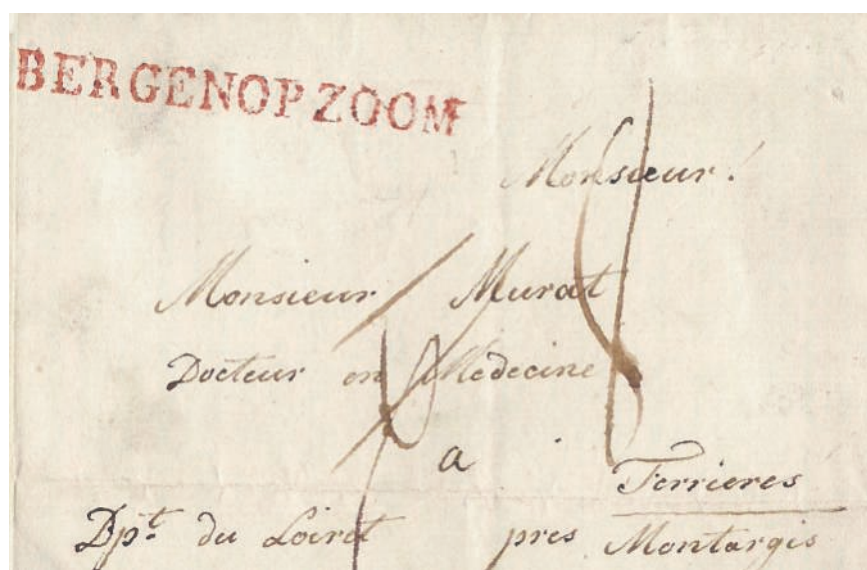 BERGENOPZOOM
Monsieur!
Monsieur Murat
Docteur en Medecine
a Ferrieres
Dpt. du Loiret pres Montargis